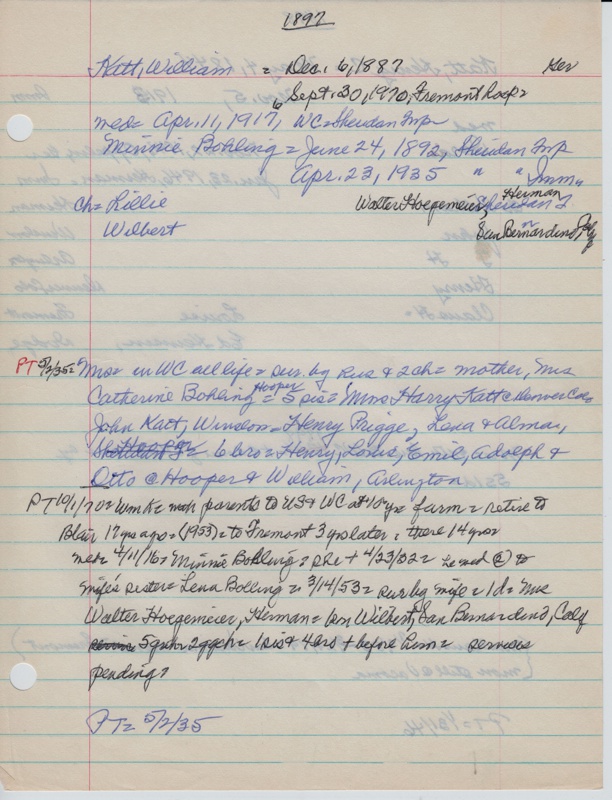 1897
Katt, William = Dec. 6, 1887
Sept. 30, 1970, Fremont Hosp=
med= Apr. 11, 1917, WC= Sheridan Twp
Minnie Bohling = June 24, 1892, Sheridan Twp
Apr. 23, 1935 " " Imm,
ch= Lillie Walter Hoegemeier, Herman
Wilbert San Bernardino,
PT 5/2/35= Mrs= in WC all life= sur. by hus & 2 ch= mother, Mrs
Catherine Bohling Hooper = 5 sis= Mmes Harry Katt @
John Katt, Winslow= Henry Prigge, Lena & Alma,
6 bro= Henry, Louis, Emil, Adolph &
Otto @ Hooper & William, Arlington
PT 10/1/70= Wm K= parents to US & WC at 10 yr= farm= retire to
Blair 17 yrs ago= (1953)= to Fremont 3 yrs later= there 14 yrs=
med= 4/11/16= Minnie Bohling= she + 4/23/ = he med @ to
wife's sister= Lena Bolling = 3/14/53= sur by wife= 1d= Mrs
Walter Hoegemeier, Herman= 1sn Wilbert, San Bernardino, Calif
5 grchr 2 ggch= 1 sis & 4 bro + before him= services
pending=
PT= 5/2/35